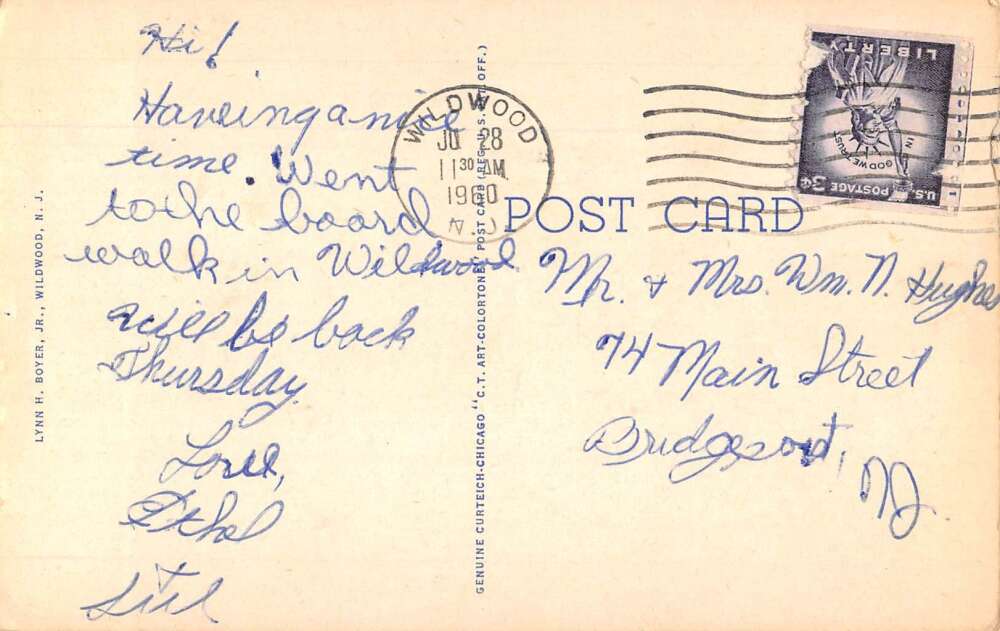 Hi!
Haveing a nice
time. Went
to the board
walk in Wildwood
will be back
Thursday.
Love,
Ethel
LYNN H. BOYER, JR., WILDWOOD, N. J.
GENUINE CURTEICH-CHICAGO "C.T. ART-COLORTONE" POST CARD (REG. U.S. PAT. OFF.)
WILDWOOD
28
11 30 AM
1960
N.J.
POST CARD
LIBERTY
IN GOD WE TRUST
U.S. POSTAGE 3¢
Mr. + Mrs. Wm. N. Hughes
74 Main Street
Bridgeport,
NJ